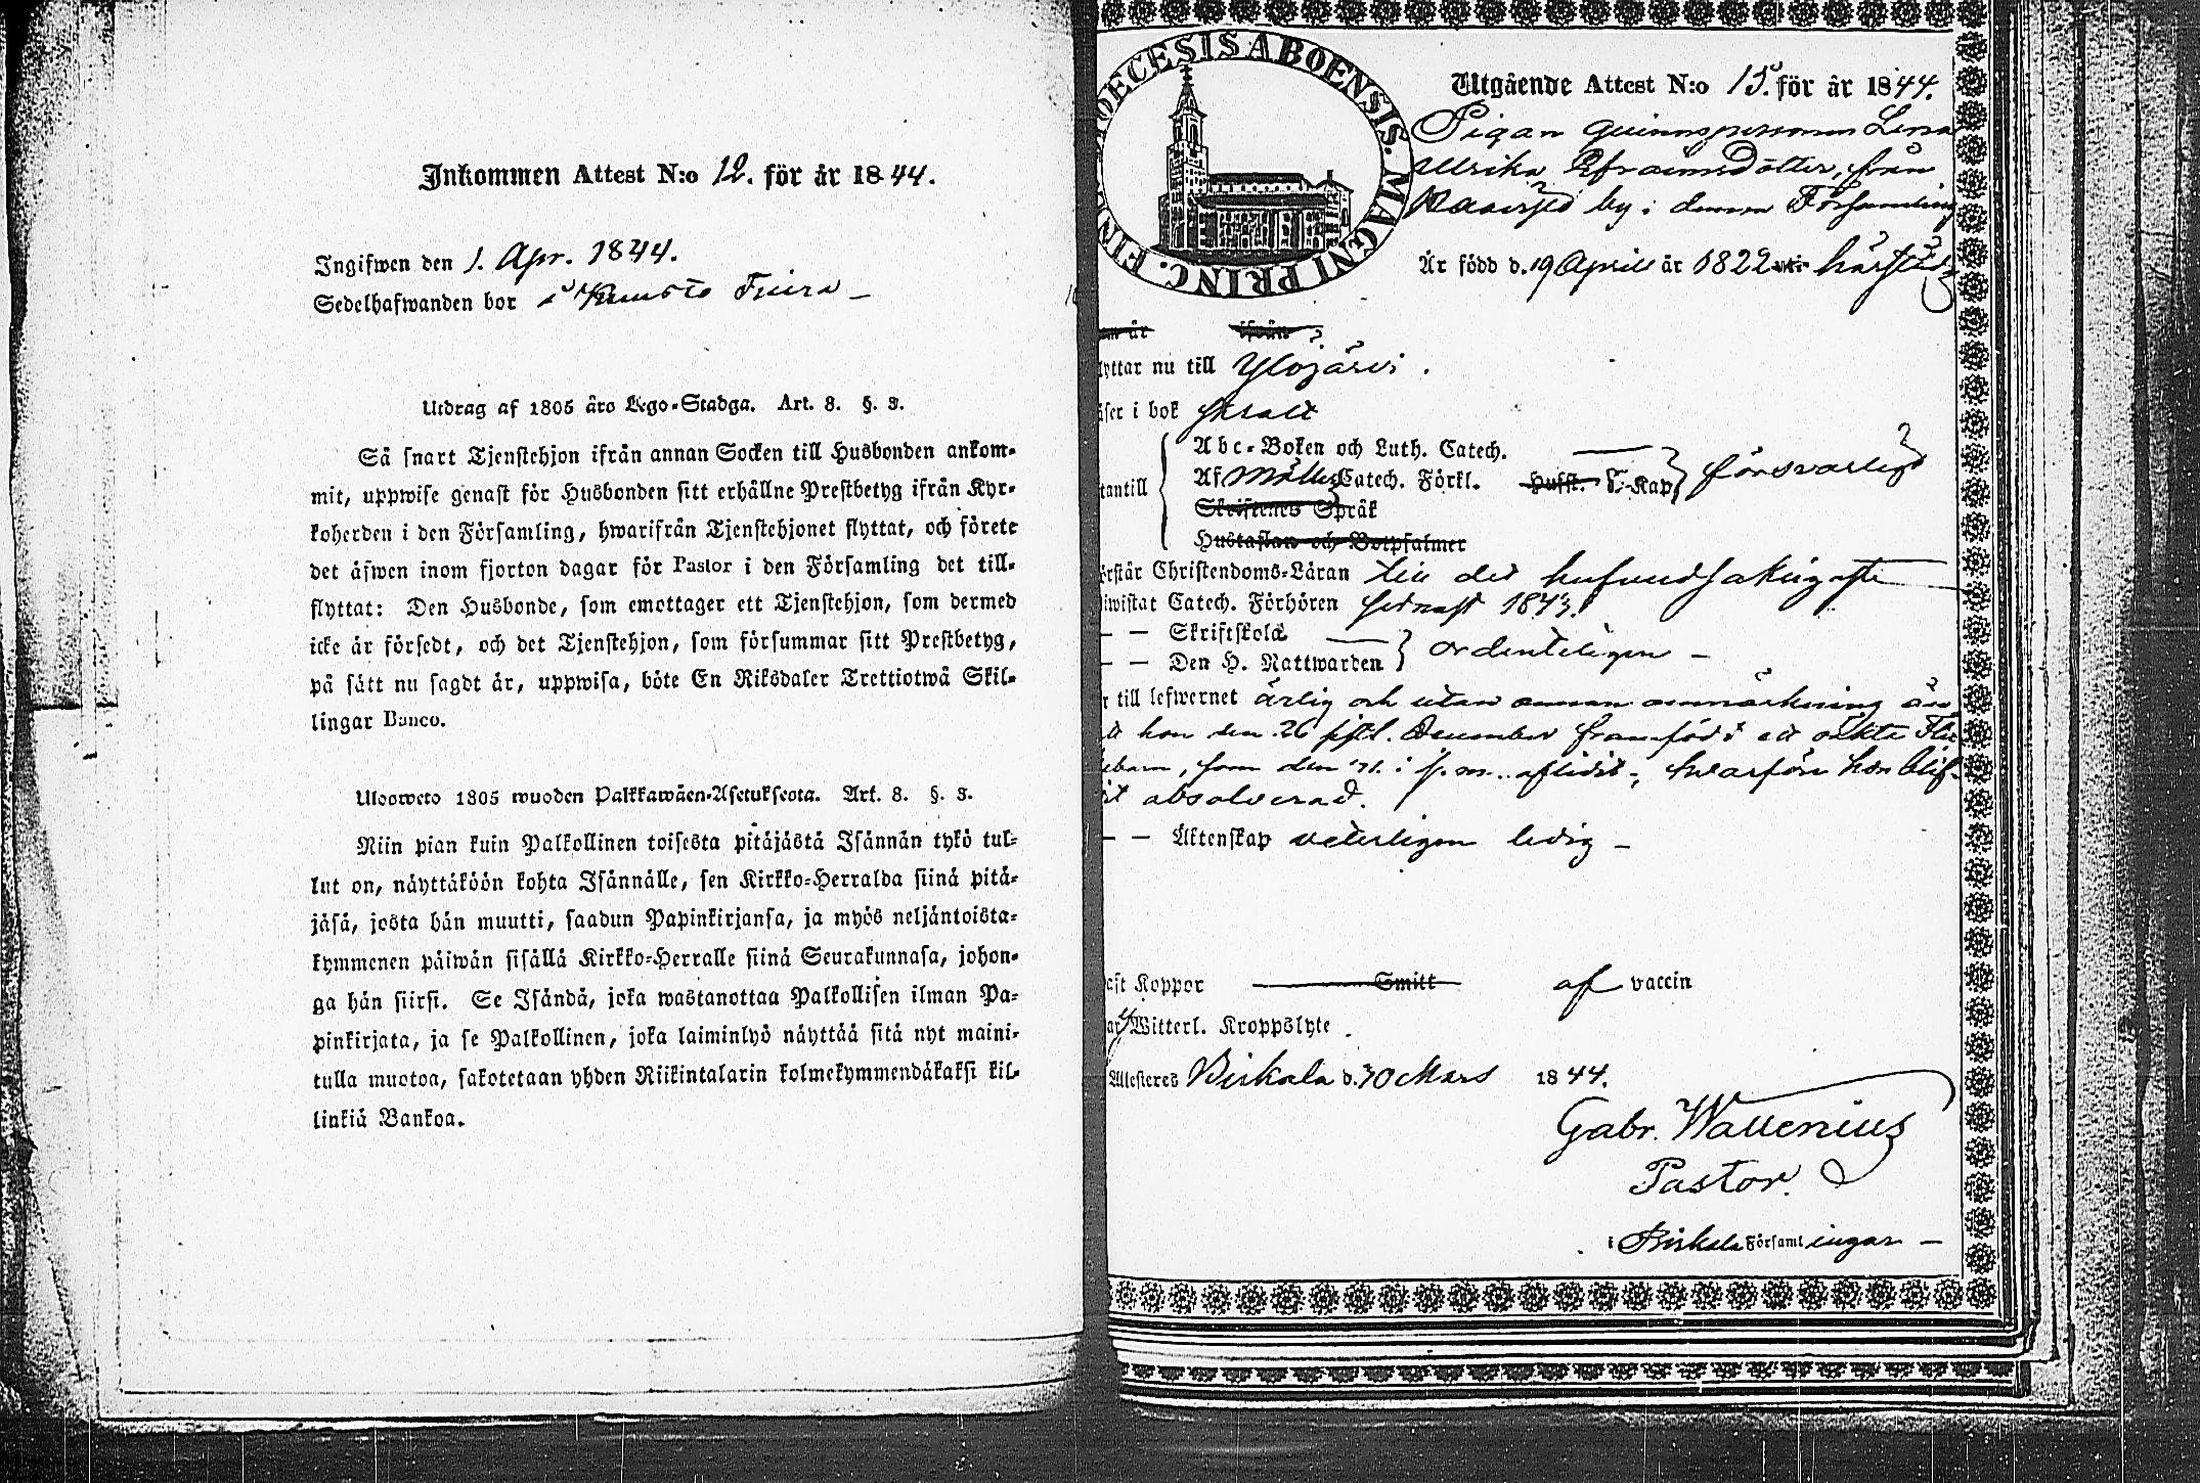 Inkommen Attest N:o 12. för år 1844.
Ingifwen den 1. Apr. 1844.
Sedelhafwanden bor i
Utdrag af 1805 års Lego-Stadga. Art. 8. §. 3.
Så snart Tjenstehjon ifrån annan Socken till Husbonden ankom-
mit, uppwise genast för Husbonden sitt erhållne Prestbetyg ifrån Kyr-
koherden i den Församling, hwarifrån Tjenstehjonet flyttat, och förete
det äfwen inom fjorton dagar för Pastor i den Församling det till-
flyttat: Den Husbonde, som emottager ett Tjenstehjon, som dermed
icke är försedt, och det Tjenstehjon, som försummar sitt Prestbetyg,
på sätt nu sagdt är, uppwisa, böte En Riksdaler Trettiotwå Skil-
lingar Banco.
Ulosweto 1805 wuoden Palkkawäen-Asetuksesta. Art. 8. §. 3.
Niin pian kuin Palkollinen toisesta pitäjästä Isännän tykö tul-
lut on, näyttäköön kohta Isännälle, sen Kirkko-Herralda siinä pitä-
jäsä, josta hän muutti, saadun Papinkirjansa, ja myös neljäntoista-
kymmenen päiwän sisällä Kirkko-Herralle siinä Seurakunnasa, johon-
ga hän siirsi. Se Isändä, joka wastanottaa Palkollisen ilman Pa-
pinkirjata, ja se Palkollinen, joka laiminlyö näyttää sitä nyt maini-
tulla muotoa, sakotetaan yhden Riikintalarin kolmekymmendäkaksi kil-
linkiä Bankoa.
DIOECESIS ABOENSIS. MAGNI PRINC. FIN
Utgående Attest N:o 15. för år 1844.
Pigan quinnspersonen Lena
Ulrika Efraimsdotter, från
by i denna Församling
Är född d. 19 Aprill år 1822 härstädes
år ifrån
yttar nu till Ylöjärvi.
äser i bok
Abc-Boken och Luth. Catech.
tantill Af Möllers Catech. Förkl. Hufst. 5. Kap försvarligt
Skriftenes Språk
Hustaflan och Botpsalmer
örstår Christendoms-Läran till det hufvudsakligaste
iwistat Catech. Förhören sednast 1843.
— — Skriftskola
— — Den H. Nattwarden ordenteligen —
r till lefwernet ärlig och utan annan anmärkning än
tt hon den 26 sistl. December framfödt ett oäkta Flic
kebarn, som den 21. i s. m. aflidit; hvarföre hon blif-
vit absolverad.
— — Äktenskap veterligen ledig —
aft Koppor Smitt af vaccin
ar Witterl. Kroppslyte.
Attesteres Birkala d. 30 Mars 1844.
Gabr. Wallenius
Pastor.
i Birkala Församlingar —